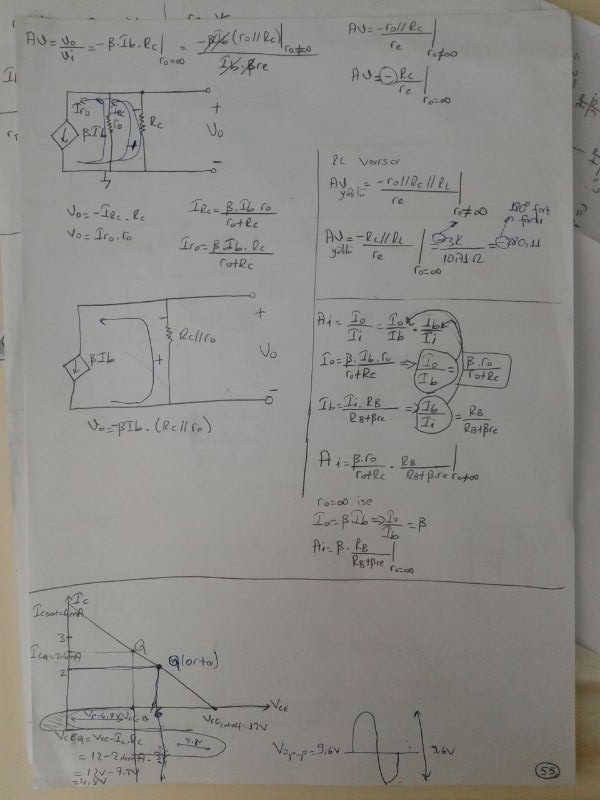 Av = vo/vi = -β.Ib.Rc | ro=∞ = -β.Ib (ro//Rc)/Ib.βre | ro≠∞
Av = -ro//Rc/re | ro≠∞
Av = -Rc/re | ro=∞
Iro
IRc
βIb
ro
Rc
+
Vo
-
Vo = -IRc.Rc
Vo = Iro.ro
IRc = β.Ib.ro/ro+Rc
Iro = β.Ib.Rc/ro+Rc
RL varsa
Av yüklü = -ro//Rc//RL/re | ro≠∞
Av yüklü = -Rc//RL/re | ro=∞ = -3K/10.71Ω = -280,11
180° fark
βIb
Rc//ro
+
Vo
-
Vo = -βIb.(Rc//ro)
Ai = Io/Ii = Io/Ib . Ib/Ii
Io = β.Ib.ro/ro+Rc => Io/Ib = β.ro/ro+Rc
Ib = Ii.RB/RB+βre => Ib/Ii = RB/RB+βre
Ai = β.ro/ro+Rc . RB/RB+β.re | ro≠∞
ro=∞ ise
Io = βIb => Io/Ib = β
Ai = β. RB/RB+βre | ro=∞
Ic
Icsat=4mA
3
ICQ=2,4mA
2
Q
Q(orta)
6
VCE
VCEcutoff=12V
VCEQ = VCC-Ic.Rc
= 12-2,4mA.3K
= 12V-7.2V
= 4.8V
4.8V
Vop-p = 9,6V
9.6V
55